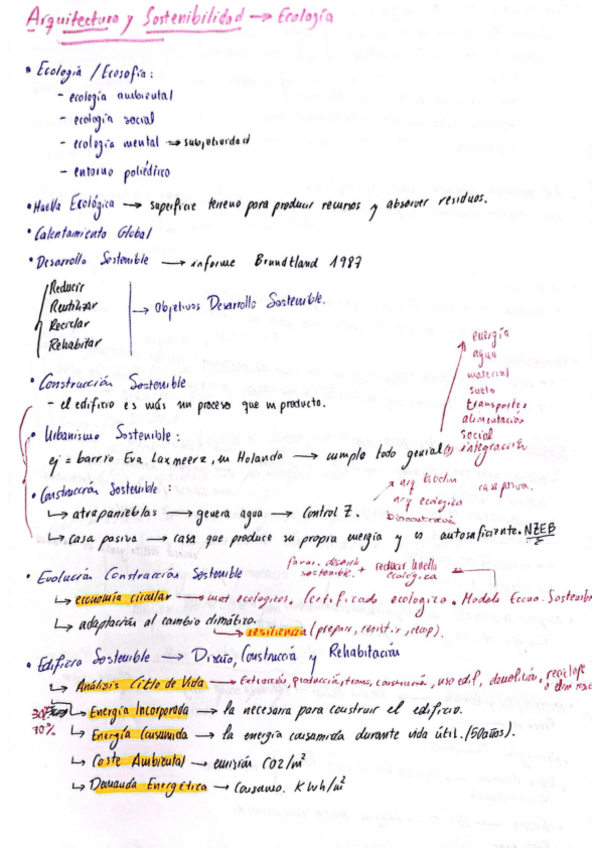 Arquitectura y Sostenibilidad → Ecología
• Ecología / Ecosofía:
- ecología ambiental
- ecología social
- ecología mental → subjetividad
- entorno poliédrico
• Huella Ecológica → superficie terreno para producir recursos y absorver residuos.
• Calentamiento Global
• Desarrollo Sostenible → informe Brundtland 1987
Reducir
Reutilizar
Reciclar
Rehabitar
→ Objetivos Desarrollo Sostenible.
energía
agua
material
suelo
transportes
alimentación
social
integración
• Construcción Sostenible
- el edificio es más un proceso que un producto.
• Urbanismo Sostenible:
ej = barrio Eva Laxmeerz, en Holanda → cumple todo genial
• Construcción Sostenible:
↳ atrapanieblas → genera agua → Control Z.
arq ecologica
casa pasiva.
↳ casa pasiva → casa que produce su propia energía y es autosuficiente. NZEB
• Evolución Construcción Sostenible
sostenible. + reducir huella
ecológica
↳ economía circular → mat ecologicos, Certificado ecologico. Modelo Econo. Sostenible
↳ adaptación al cambio climático.
↳ resiliencia (prepar, resistir, recup).
• Edificio Sostenible → Diseño, Construcción y Rehabitación
↳ Análisis Ciclo de Vida → Extracción, producción, trans, construcción, uso edif, demolición, reciclaje
↳ Energía Incorporada → la necesaria para construir el edificio.
30%
70%
↳ Energía Consumida → la energía consumida durante vida útil. (50años).
↳ Coste Ambiental → emisión CO2/m²
↳ Demanda Energética → Consumo. KWh/m²